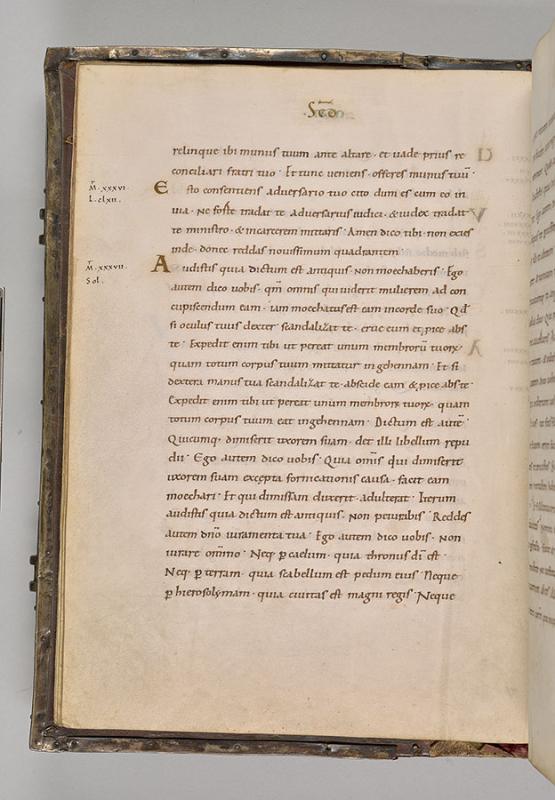 ·SCD·
relinque ibi munus tuum ante altare · et uade prius re
conciliari fratri tuo · Et tunc ueniens · offeres munus tuū ·
M̄ · xxxvi ·
L · clxii ·
Esto consentiens aduersario tuo cito dum es cum eo in
uia · Ne forte tradat te aduersarius iudici · & iudex tradat
te ministro · & in carcerem mittaris · Amen dico tibi · non exies
inde · donec reddas nouissimum quadrantem ·
M̄ · xxxvii ·
Sol ·
Audistis quia dictum est antiquis · Non moechaberis · Ego
autem dico uobis · qm̄ omnis qui uiderit mulierem ad con
cupiscendum eam · iam moechatus est eam in corde suo · Qd̄
si oculus tuus dexter scandalizat te · erue eum et pice abs
te · Expedit enim tibi ut pereat unum membrorū tuorꝝ ·
quam totum corpus tuum mittatur in gehennam · Et si
dextera manus tua scandalizat te · abscide eam & pice abs te ·
Expedit enim tibi ut pereat unum membrorꝝ tuorꝝ · quam
totum corpus tuum eat in gehennam · Dictum est autē ·
Quicumq; dimiserit uxorem suam · det illi libellum repu
dii · Ego autem dico uobis · Quia omīs qui dimiserit
uxorem suam excepta fornicationis causa · facit eam
moechari · Et qui dimissam duxerit · adulterat · Iterum
audistis quia dictum est antiquis · Non peiurabis · Reddes
autem dn̄o iuramenta tua · Ego autem dico uobis · Non
iurare om̄ino · Neq; ꝑ caelum · quia thronus dī est ·
Neq; ꝑ terram · quia scabellum est pedum eius · Neque
ꝑ hierosolymam · quia ciuitas est magni regis · Neque